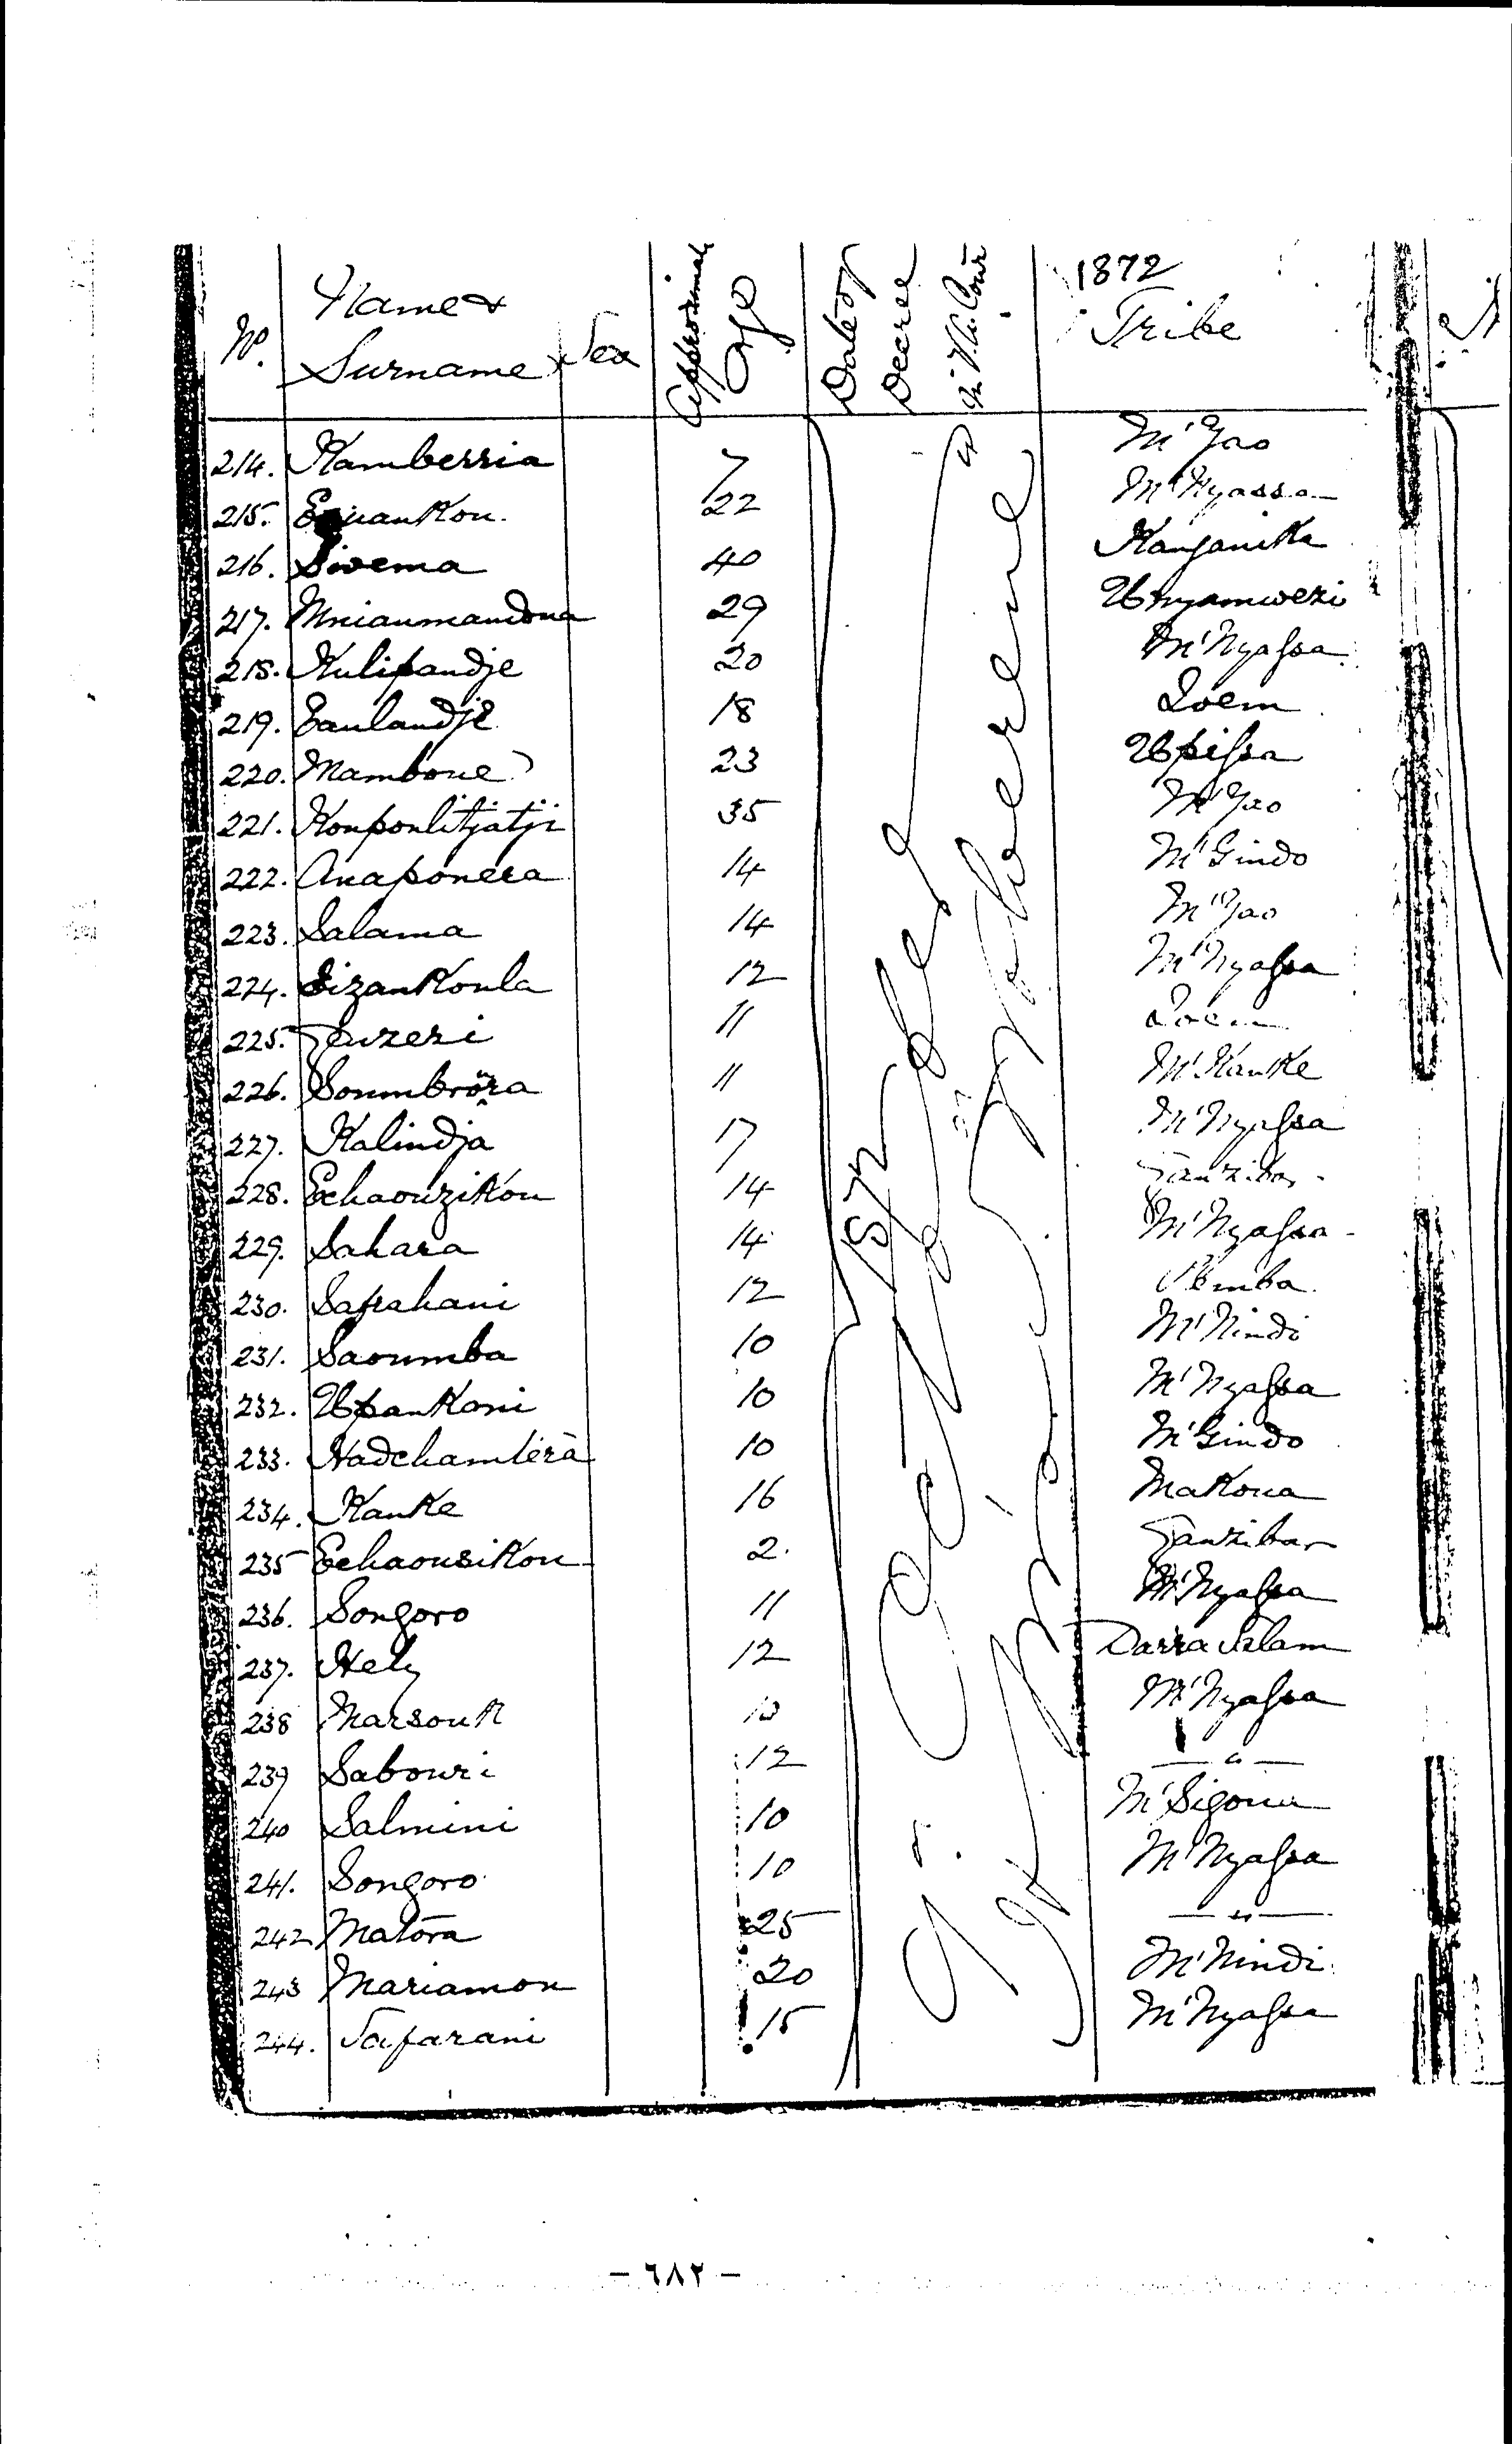 1872
No. Name & Surname Sex Approximate Age Date of Decree in V. A. Court Tribe
214. Kamberria 7 M'Yao
215. 22 M'Nyassa
216. Sivema 40 Kanganika
217. Mniaumandona 29 Unyamwezi
218. Kulipandje 20 M'Nyassa
219. Eaulandje 18 Loem
220. Mamboue 23 Upissa
221. Konponlitjatji 35 M'Yao
222. Anaponera 14 M'Gindo
223. Salama 14 M'Yao
224. Sizankoula 12 M'Nyassa
225. 11 Loem
226. Soumbrora 11 M'Kanke
227. Kalindja 17 M'Nyassa
228. Echaouzikou 14 Zanzibar
229. Sahara 14 M'Nyassa
230. Safrahani 12 Pemba
231. Saoumba 10 M'Nindi
232. Upankoni 10 M'Nyassa
233. 10 M'Gindo
234. Kanke 16 Makoua
235 Echaousikou 2. Zanzibar
236. Songoro 11 M'Nyassa
237. Hely 12 Darra Salam
238 Marsouk 10 M'Nyassa
239 Sabouri 12 — " —
240 Salmini 10 M'Sigoua
241. Songoro 10 M'Nyassa
242 Matora 25 — " —
243 Mariamou 20 M'Nindi
244. Safarani 15 M'Nyassa
1872
- ٦٨٢ -